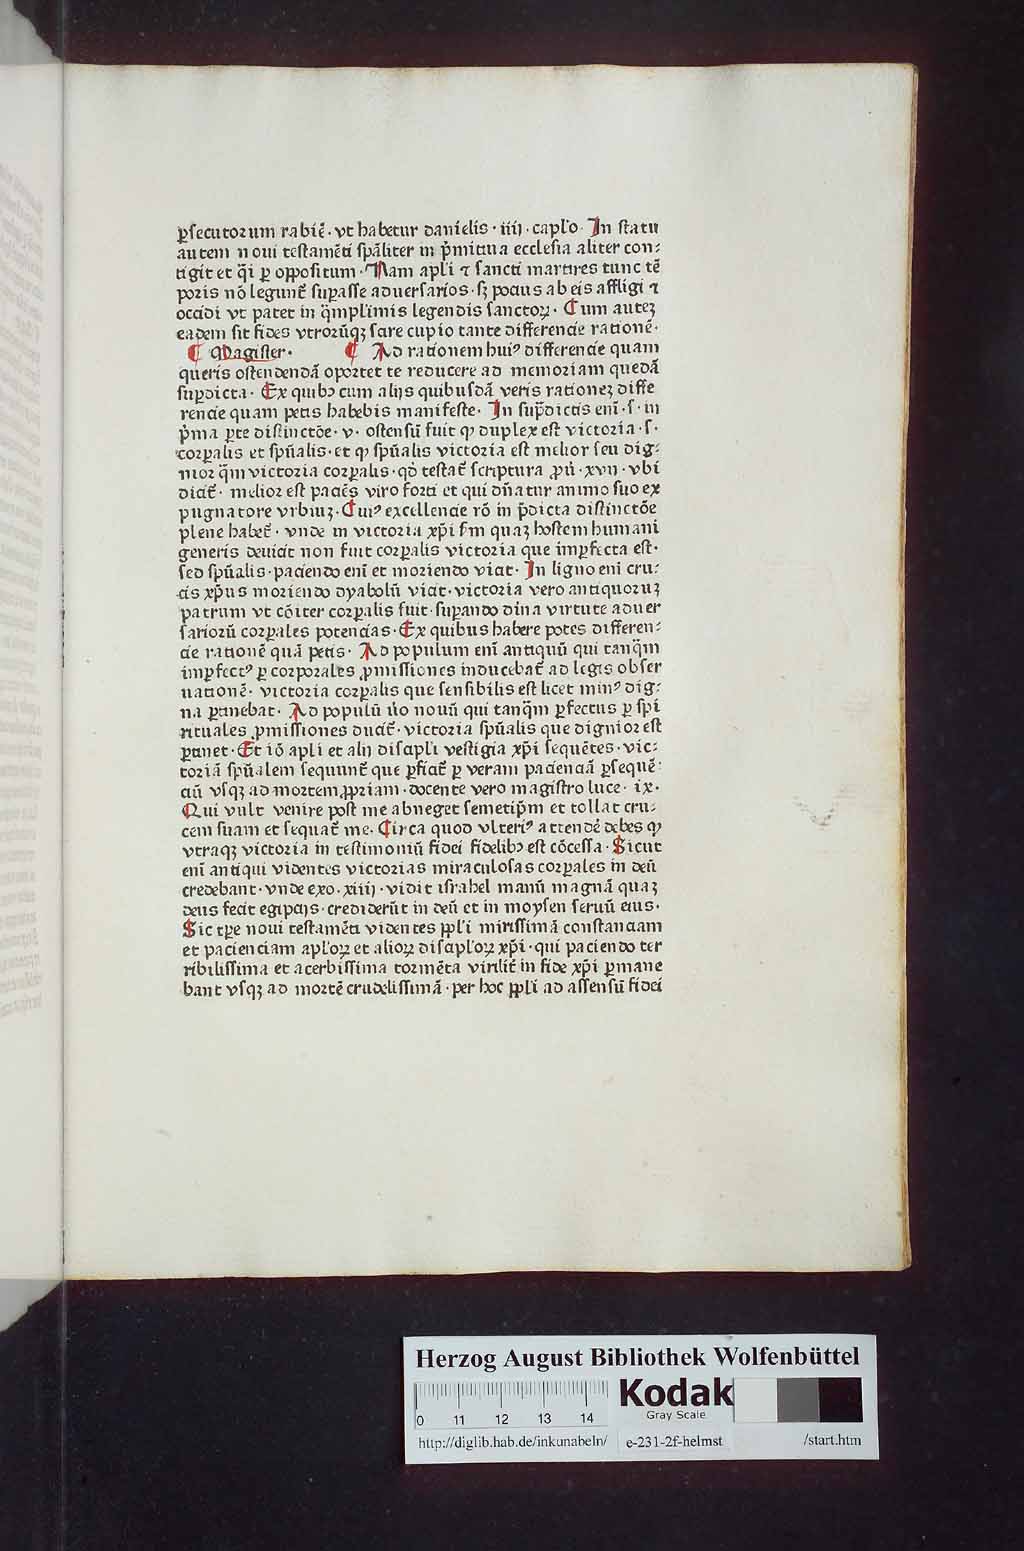 ꝑſecutorum rabiē · vt habetur danielis · iiij · capl'o · In ſtatu
autem noui teſtamēti ſpāliter in p̄mitiua eccleſia aliter con⸗
tigit et q̄i ꝑ oppoſitum · Nam apl̄i ⁊ ſancti martires tunc tē
poris nō legunt̄ ſuꝑaſſe aduerſarios · ſꝫ pocius ab eis affligi ⁊
occidi vt patet in q̄mpl'imis legendis ſanctoꝝ · Cum auteꝫ
eadem ſit fides vtrorūqꝫ ſcire cupio tante differencie rationē ·
¶ Magiſter · ¶ Ad rationem huiꝰ differencie quam
queris oſtendendā oportet te reducere ad memoriam quedā
ſupꝑdicta · Ex quibꝫ cum alijs quibuſdā veris rationeꝫ diffe
rencie quam petis habebis manifeſte · In ſup̄dictis enī · ſ · in
p̄ma ꝑte diſtinctōe · v · oſtenſū fuit ꝙ duplex eſt victoria · ſ ·
corꝑalis et ſpūalis · et ꝙ ſpūalis victoria eſt melior ſeu dig⸗
nior q̄m victoria corꝑalis · qd̄ teſtat̄ ſcriptura ꝓū · xvij · vbi
dicit̄ · melior eſt paciēs viro forti et qui dn̄atur animo ſuo ex
pugnatore vrbiuꝫ · Cuiꝰ excellencie rō in p̄dicta diſtinctōe
plene habet̄ · vnde in victoria xp̄i ſm̄ quaꝫ hoſtem humani
generis deuicit non fuit corꝑalis victoria que imꝑfecta eſt ·
ſed ſpūalis · paciendo enī et moriendo vicit · In ligno enī cru⸗
cis xp̄us moriendo dyabolū vicit · victoria vero antiquoruꝫ
patrum vt cōiter corꝑalis fuit · ſuꝑando diīna virtute aduer
ſariorū corꝑales potencias · Ex quibus habere potes differen⸗
cie rationē quā petis · Ad populum enī antiquū qui tanq̄m
imꝑfectꝰ ꝑ corporales ꝓmiſſiones inducebat̄ ad legis obſer
uationē · victoria corꝑalis que ſenſibilis eſt licet minꝰ dig⸗
na ꝑtinebat · Ad populū v̓o nouū qui tanq̄m ꝑfectus ꝑ ſpi
rituales ꝓmiſſiones ducit̄ · victoria ſpūalis que dignior eſt
ꝑtinet · Et iō apl̄i et alij diſcipl̄i veſtigia xp̄i ſequētes · vic⸗
toriā ſpūalem ſequunt̄ que ꝑficit̄ ꝑ veram pacienciā ꝑſequē⸗
ciū vſqꝫ ad mortem ꝓpriam · docente vero magiſtro luce · ix ·
Qui vult venire poſt me abneget ſemetip̄m et tollat cru⸗
cem ſuam et ſequat̄ me · Circa quod vlteriꝰ attendē debes ꝙ
vtraqꝫ victoria in teſtimoniū fidei fidelibꝫ eſt cōceſſa · Sicut
enī antiqui videntes victorias miraculoſas corꝑales in deū
credebant · vnde exo · xiiij · vidit iſrahel manū magnā quaꝫ
deus fecit egipcijs · crediderūt in deū et in moyſen ſeruū eius ·
Sic tꝑe noui teſtamēti videntes ppl̄i miriſſimā conſtanciam
et pacienciam apl'oꝝ et alioꝝ diſcipl'oꝝ xp̄i · qui paciendo ter
ribiliſſima et acerbiſſima tormēta virilit̄ in fide xp̄i ꝑmane
bant vſqꝫ ad mortē crudeliſſimā · per hoc ppl̄i ad aſſenſū fidei
Herzog August Bibliothek Wolfenbüttel
0 11 12 13 14
Kodak
Gray Scale
http://diglib.hab.de/inkunabeln/ e-231-2f-helmst /start.htm